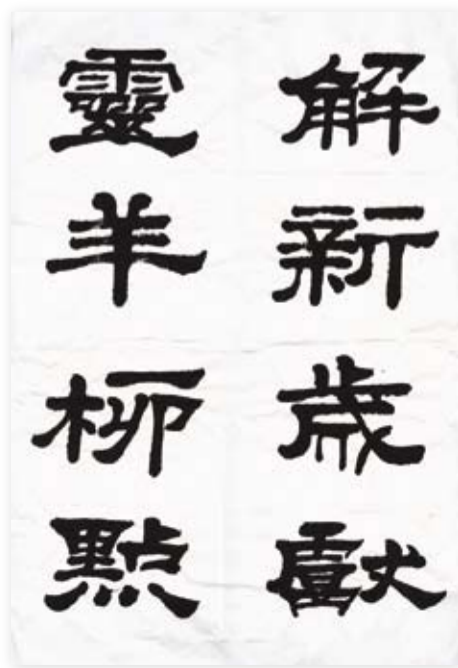 解新歲獻
靈羊柳點